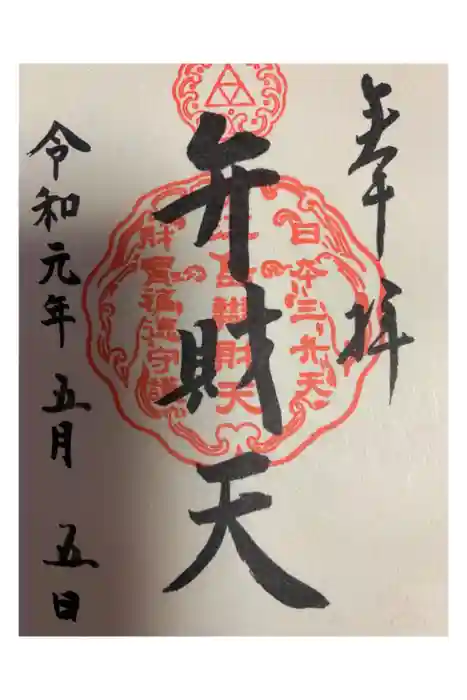 奉拝
日本三弁天
弁財天
財宝福徳守護
令和元年 五月 五日